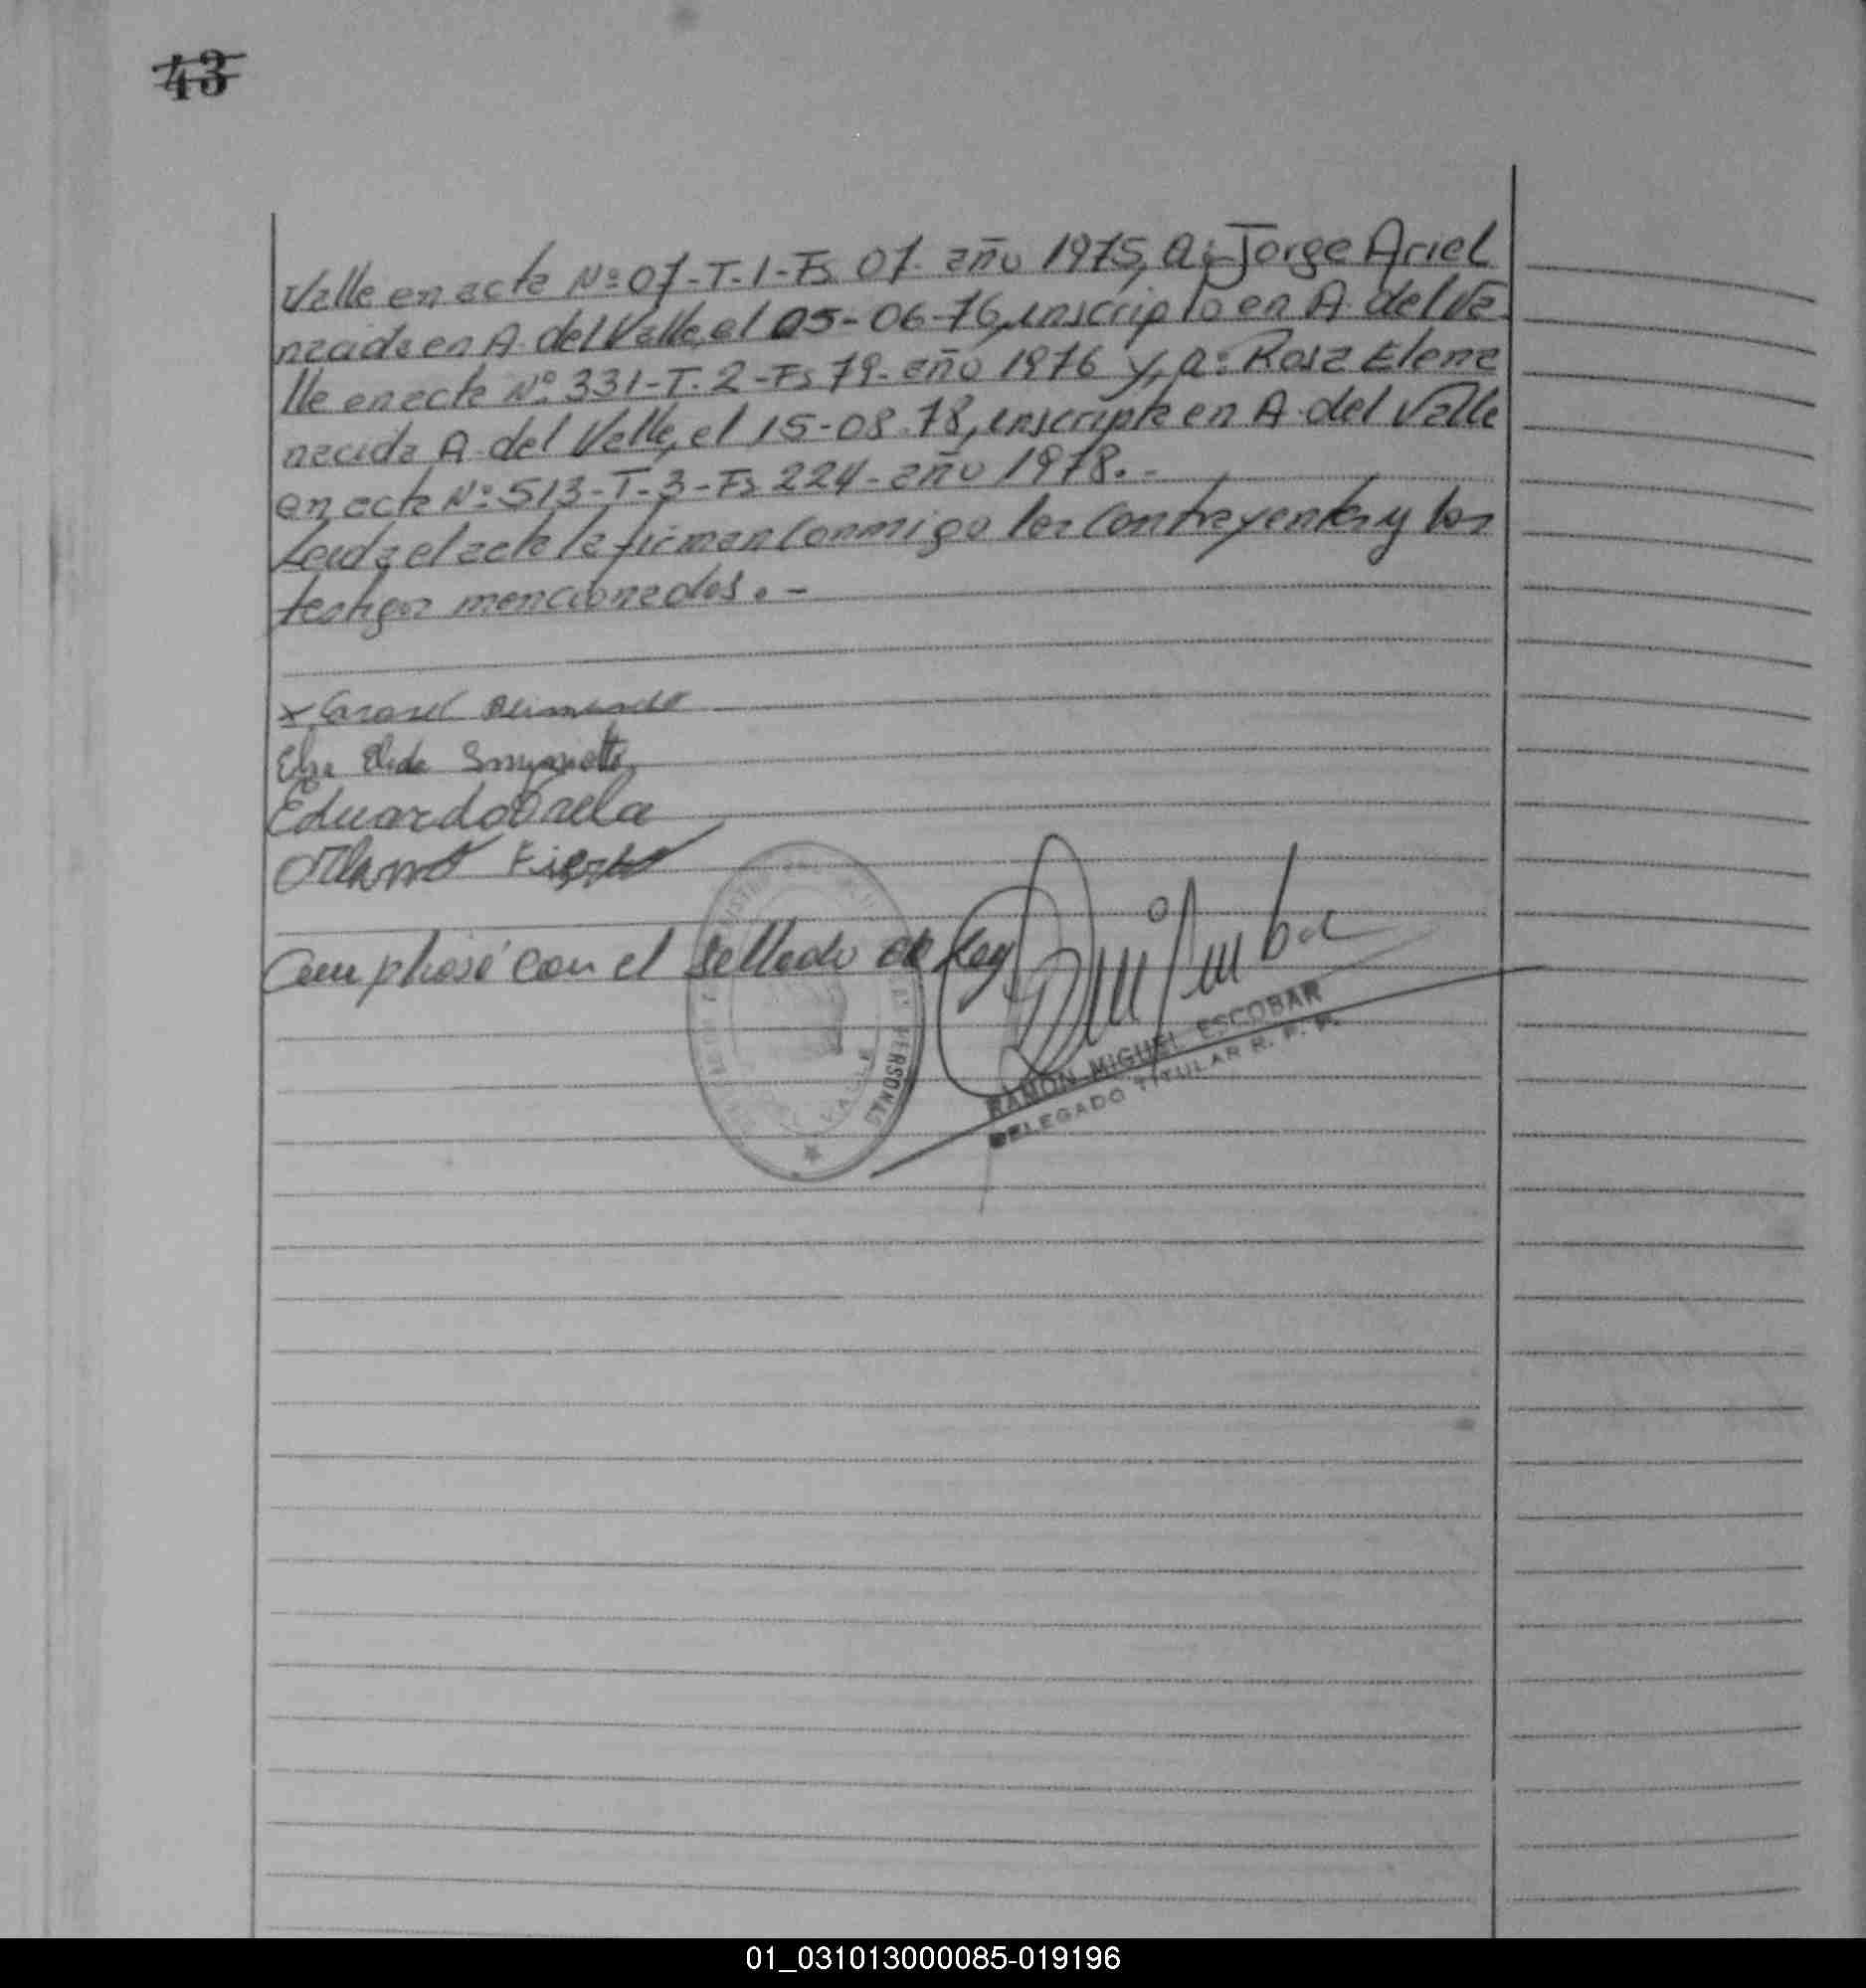 43
Valle en acta Nº 07-T-1-Fs 07- año 1975, a: Jorge Ariel
nacido en A. del Valle, el 05-06-76, inscripto en A. del Va
lle en acta Nº 331-T-2-Fs 79- año 1976 y, a: Rosa Elena
nacida A. del Valle, el 15-08-78, inscripta en A. del Valle
en acta Nº 513-T-3-Fs 224- año 1978.-
Leida el acta la firman conmigo los contrayentes y los
testigos mencionados.-
Elsa Elida
Eduardo Varela
Cumpliose con el sellado de Ley
PERSONAS
VALLE
RAMON MIGUEL ESCOBAR
DELEGADO TITULAR R. P. P.
01_031013000085-019196